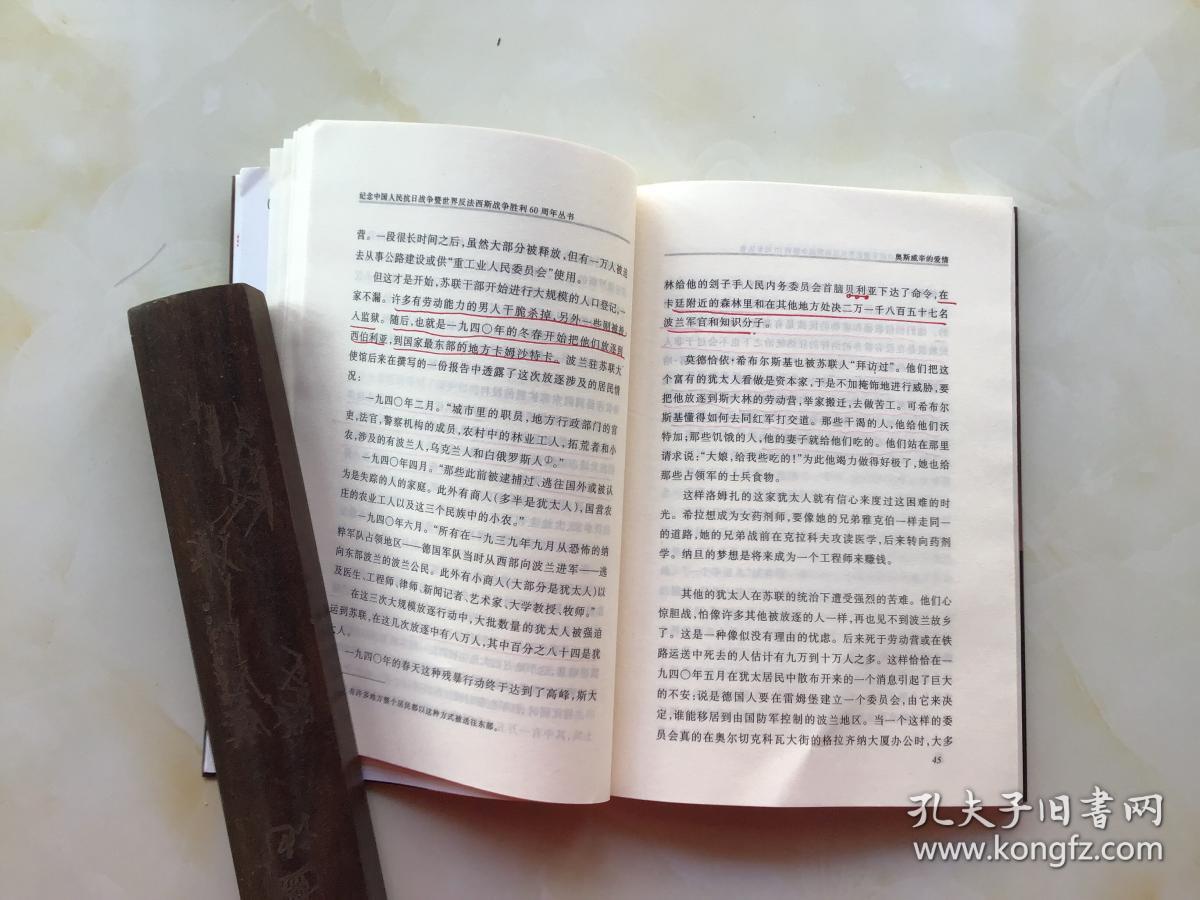 纪念中国人民抗日战争暨世界反法西斯战争胜利60周年丛书
营。一段很长时间之后，虽然大部分被释放，但有一万人被送
去从事公路建设或供“重工业人民委员会”使用。
但这才是开始，苏联干部开始进行大规模的人口登记，一
家不漏。许多有劳动能力的男人干脆杀掉，另外一些则被投
入监狱。随后，也就是一九四〇年的冬春开始把他们放逐到
西伯利亚，到国家最东部的地方卡姆沙特卡。波兰驻苏联大
使馆后来在撰写的一份报告中透露了这次放逐涉及的居民情
况：
一九四〇年二月。“城市里的职员，地方行政部门的官
吏，法官，警察机构的成员，农村中的林业工人，拓荒者和小
农，涉及的有波兰人，乌克兰人和白俄罗斯人①。”
一九四〇年四月。“那些此前被逮捕过、逃往国外或被认
为是失踪的人的家庭。此外有商人（多半是犹太人），国营农
庄的农业工人以及这三个民族中的小农。”
一九四〇年六月。“所有在一九三九年九月从恐怖的纳
粹军队占领地区——德国军队当时从西部向波兰进军——逃
向东部波兰的波兰公民。此外有小商人（大部分是犹太人）以
及医生、工程师、律师、新闻记者、艺术家、大学教授、牧师。”
在这三次大规模放逐行动中，大批数量的犹太人被强迫
运到苏联，在这几次放逐中有八万人，其中百分之八十四是犹
太人。
一九四〇年的春天这种残暴行动终于达到了高峰，斯大
有许多地方整个居民都以这种方式被送往东部。
奥斯威辛的爱情
林给他的刽子手人民内务委员会首脑贝利亚下达了命令，在
卡廷附近的森林里和在其他地方处决二万一千八百五十七名
波兰军官和知识分子。
莫德恰依·希布尔斯基也被苏联人“拜访过”。他们把这
个富有的犹太人看做是资本家，于是不加掩饰地进行威胁，要
把他放逐到斯大林的劳动营，举家搬迁，去做苦工。可希布尔
斯基懂得如何去同红军打交道。那些干渴的人，他给他们沃
特加；那些饥饿的人，他的妻子就给他们吃的。他们站在那里
请求说：“大娘，给我些吃的！”为此他竭力做得好极了，她也给
那些占领军的士兵食物。
这样洛姆扎的这家犹太人就有信心来度过这困难的时
光。希拉想成为女药剂师，要像她的兄弟雅克伯一样走同一
的道路，她的兄弟战前在克拉科夫攻读医学，后来转向药剂
学。纳旦的梦想是将来成为一个工程师来赚钱。
其他的犹太人在苏联的统治下遭受强烈的苦难。他们心
惊胆战，怕像许多其他被放逐的人一样，再也见不到波兰故乡
了。这是一种像似没有理由的忧虑。后来死于劳动营或在铁
路运送中死去的人估计有九万到十万人之多。这样恰恰在一
九四〇年五月在犹太居民中散布开来的一个消息引起了巨大
的不安；说是德国人要在雷姆堡建立一个委员会，由它来决
定，谁能移居到由国防军控制的波兰地区。当一个这样的委
员会真的在奥尔切克科瓦大街的格拉齐纳大厦办公时，大多
45
孔夫子旧书网
www.kongfz.com